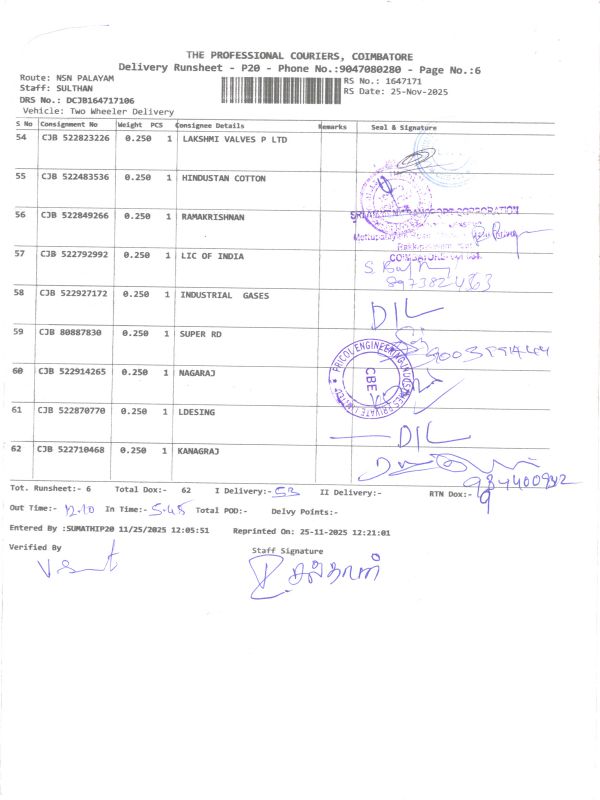 THE PROFESSIONAL COURIERS, COIMBATORE
Delivery Runsheet - P20 - Phone No.:9047080280 - Page No.:6
Route: NSN PALAYAM
RS No.: 1647171
Staff: SULTHAN
RS Date: 25-Nov-2025
DRS No.: DCJB164717106
Vehicle: Two Wheeler Delivery
S No Consignment No Weight PCS Consignee Details Remarks Seal & Signature
54 CJB 522823226 0.250 1 LAKSHMI VALVES P LTD
55 CJB 522483536 0.250 1 HINDUSTAN COTTON
56 CJB 522849266 0.250 1 RAMAKRISHNAN
57 CJB 522792992 0.250 1 LIC OF INDIA
58 CJB 522927172 0.250 1 INDUSTRIAL GASES D/L
59 CJB 80887830 0.250 1 SUPER RD
PRICOL ENGINEERING INDUSTRIES PRIVATE LIMITED
CBE
60 CJB 522914265 0.250 1 NAGARAJ
61 CJB 522870770 0.250 1 LDESING D/L
62 CJB 522710468 0.250 1 KANAGRAJ
Tot. Runsheet:- 6 Total Dox:- 62 I Delivery:- 53 II Delivery:- RTN Dox:- 9
Out Time:- 12.10 In Time:- 5.45 Total POD:- Delvy Points:-
Entered By :SUMATHIP20 11/25/2025 12:05:51 Reprinted On: 25-11-2025 12:21:01
Verified By Staff Signature
சுல்தான்